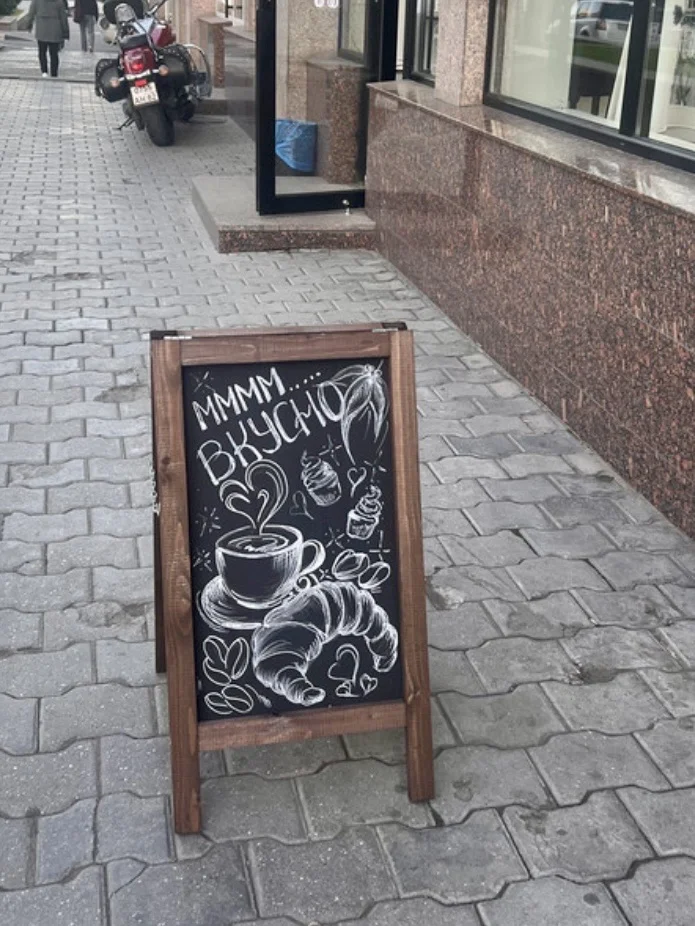 мммм.....
вкусно